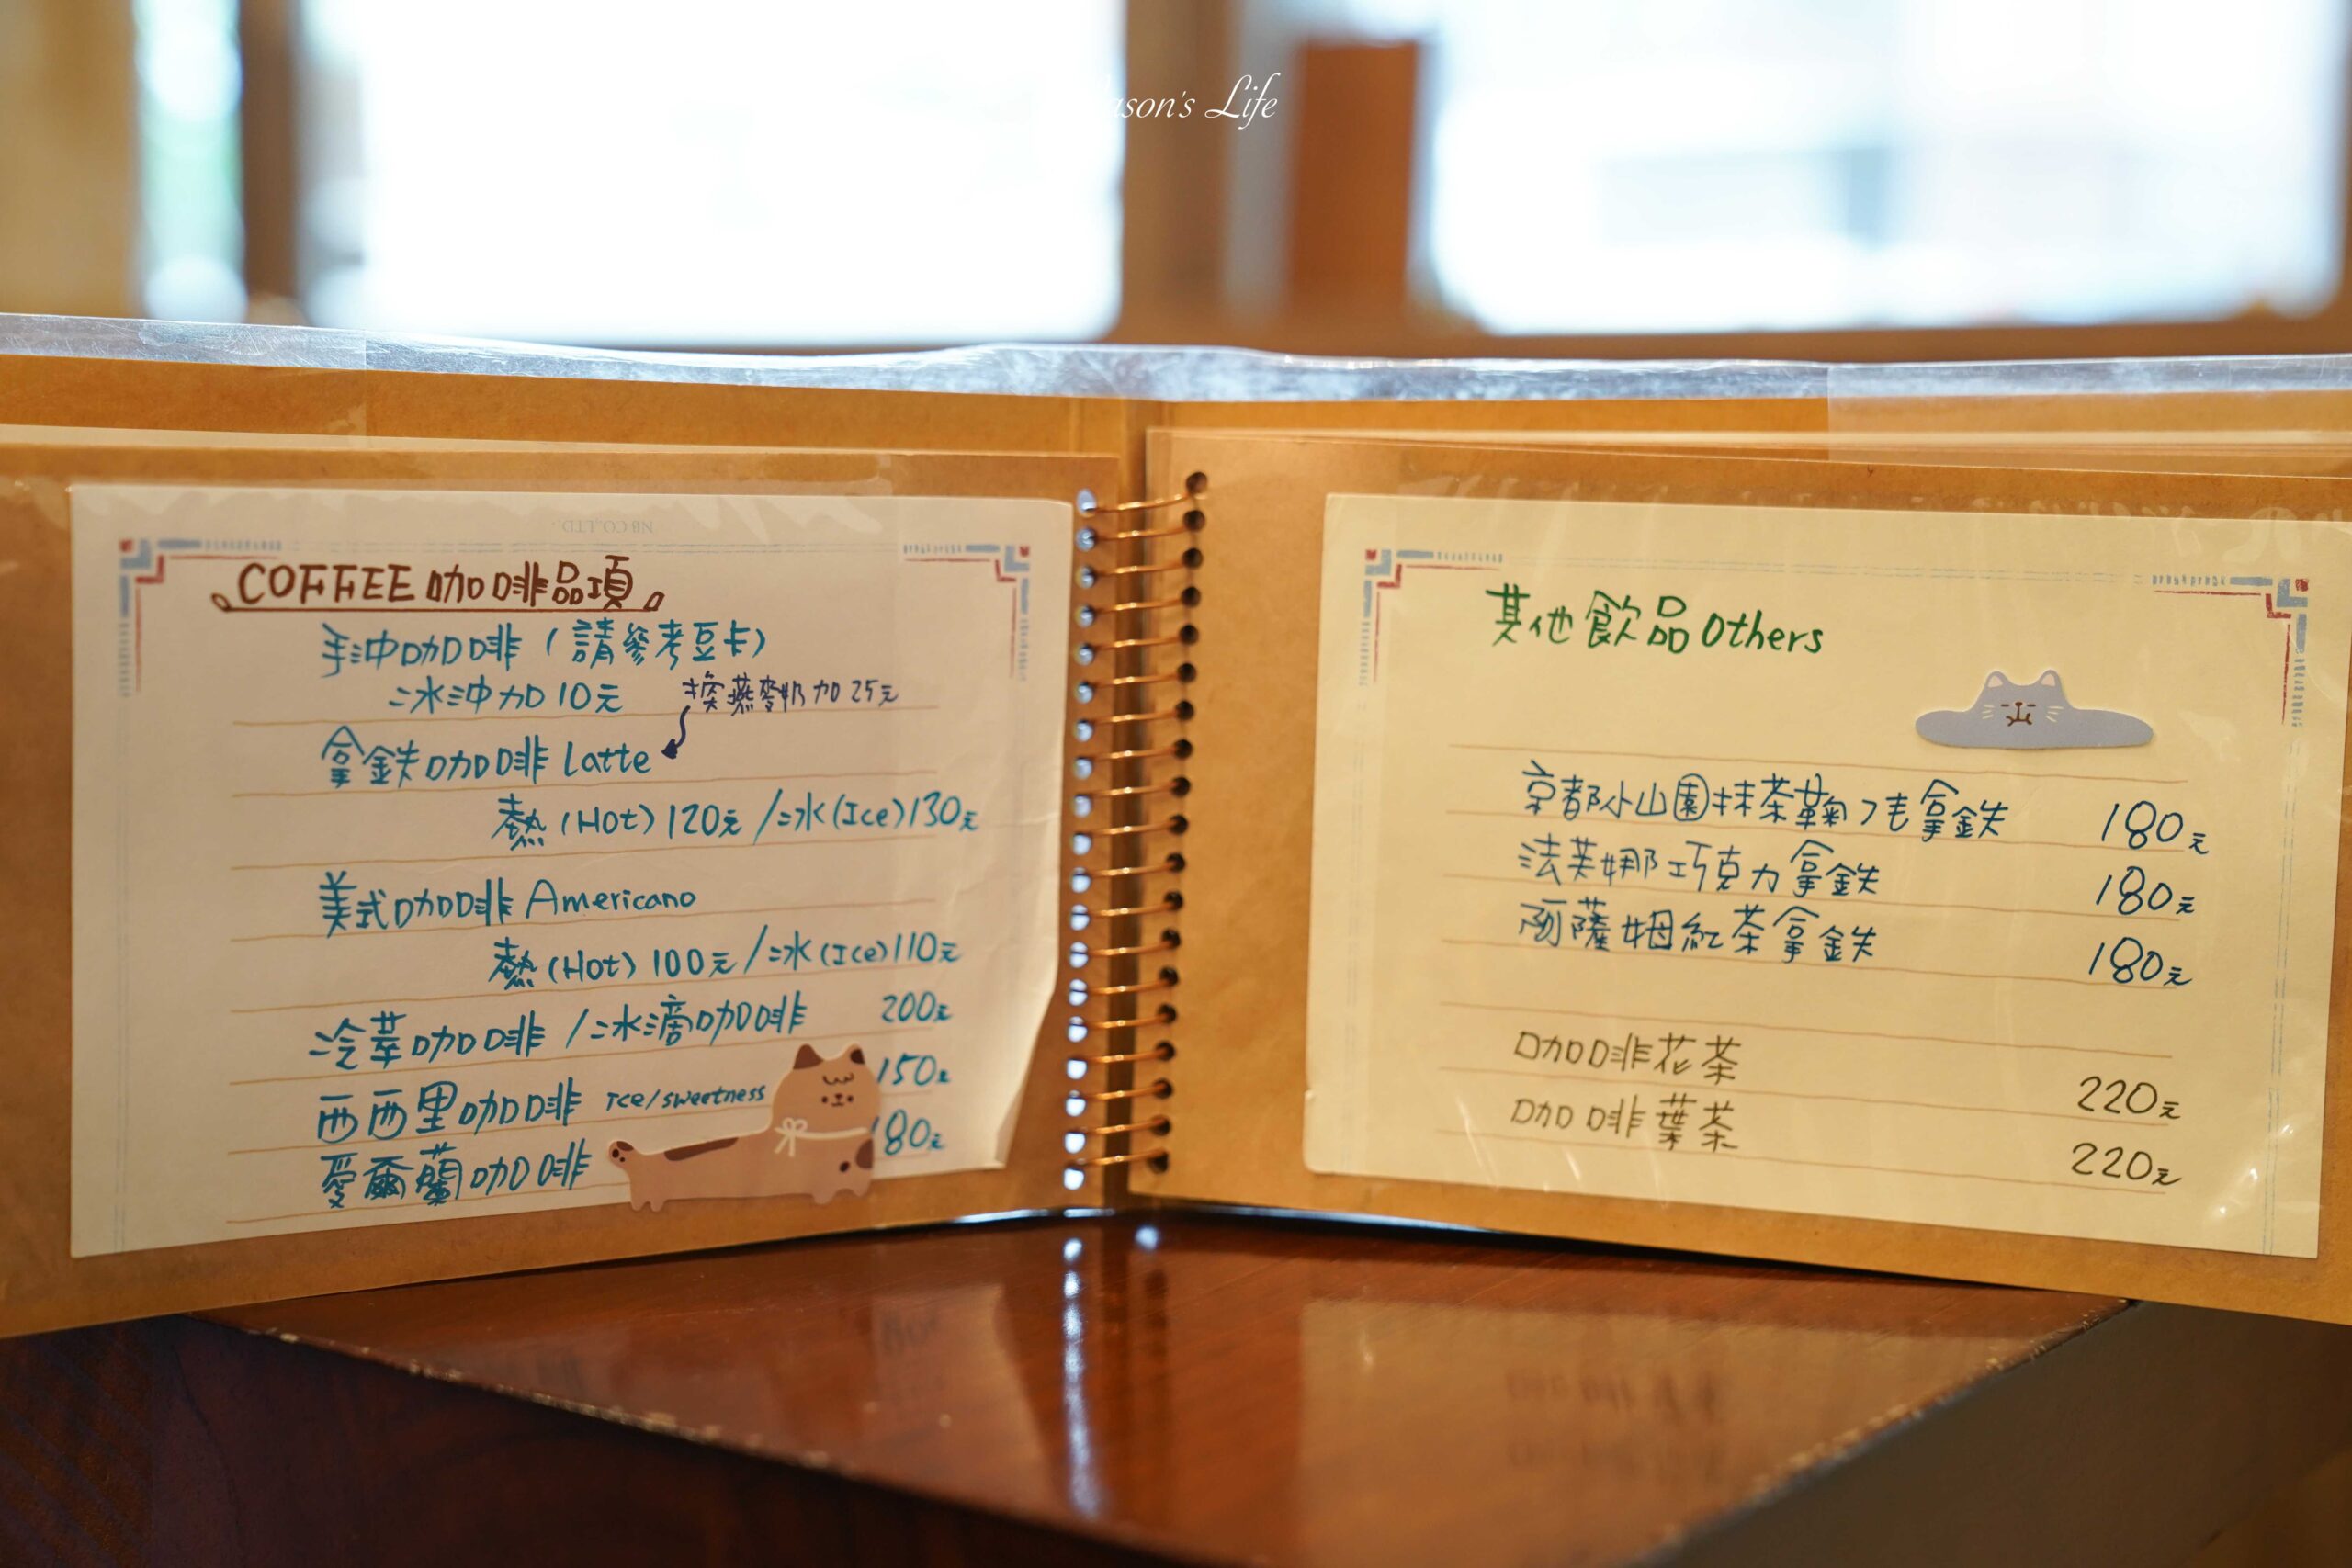 ason's Life
NB CO.,LTD.
COFFEE 咖啡品項
手沖咖啡 (請參考豆卡)
冰沖加10元
換燕麥奶加25元
拿鉄咖啡 Latte
熱 (Hot) 120元 /冰(Ice)130元
美式咖啡 Americano
熱 (Hot) 100元 /冰(Ice)110元
冷萃咖啡 /冰滴咖啡 200元
西西里咖啡 Ice/sweetness 150元
愛爾蘭咖啡 180元
其他飲品 Others
京都小山園抹茶 拿鉄 180元
法芙娜巧克力拿鉄 180元
阿薩姆紅茶拿鉄 180元
咖啡花茶 220元
咖啡葉茶 220元